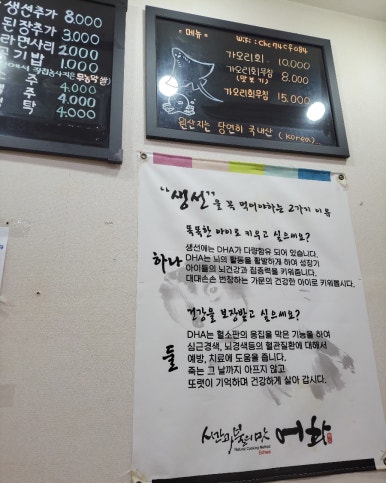 생선추가 8.000
된장추가 3.000
라면사리 2.000
공기밥 1.000
주 4.000
주 4.000
탁 4.000
* 메뉴 *
WiFi :
가오리회 10.000
가오리회무침 8.000
(맛보기)
가오리회무침 15.000
원산지는 당연히 국내산 (Korea)
"생선"을 꼭 먹어야하는 2가지 이유
하나
똑똑한 아이로 키우고 싶으세요?
생선에는 DHA가 다량함유 되어 있습니다.
DHA는 뇌의 활동을 활발하게 하여 성장기
아이들의 뇌건강과 집중력을 키워줍니다.
대대손손 번창하는 가문의 건강한 아이로 키우봅시다.
둘
건강을 보장받고 싶으세요?
DHA는 혈소판의 응집을 막은 기능을 하여
심근경색, 뇌경색등의 혈관질환에 대해서
예방, 치료에 도움을 줍니다.
죽는 그 날까지 아프지 않고
또렷이 기억하며 건강하게 살아 갑시다.
시간과 불의 맛
Natural Cooking Method
어화